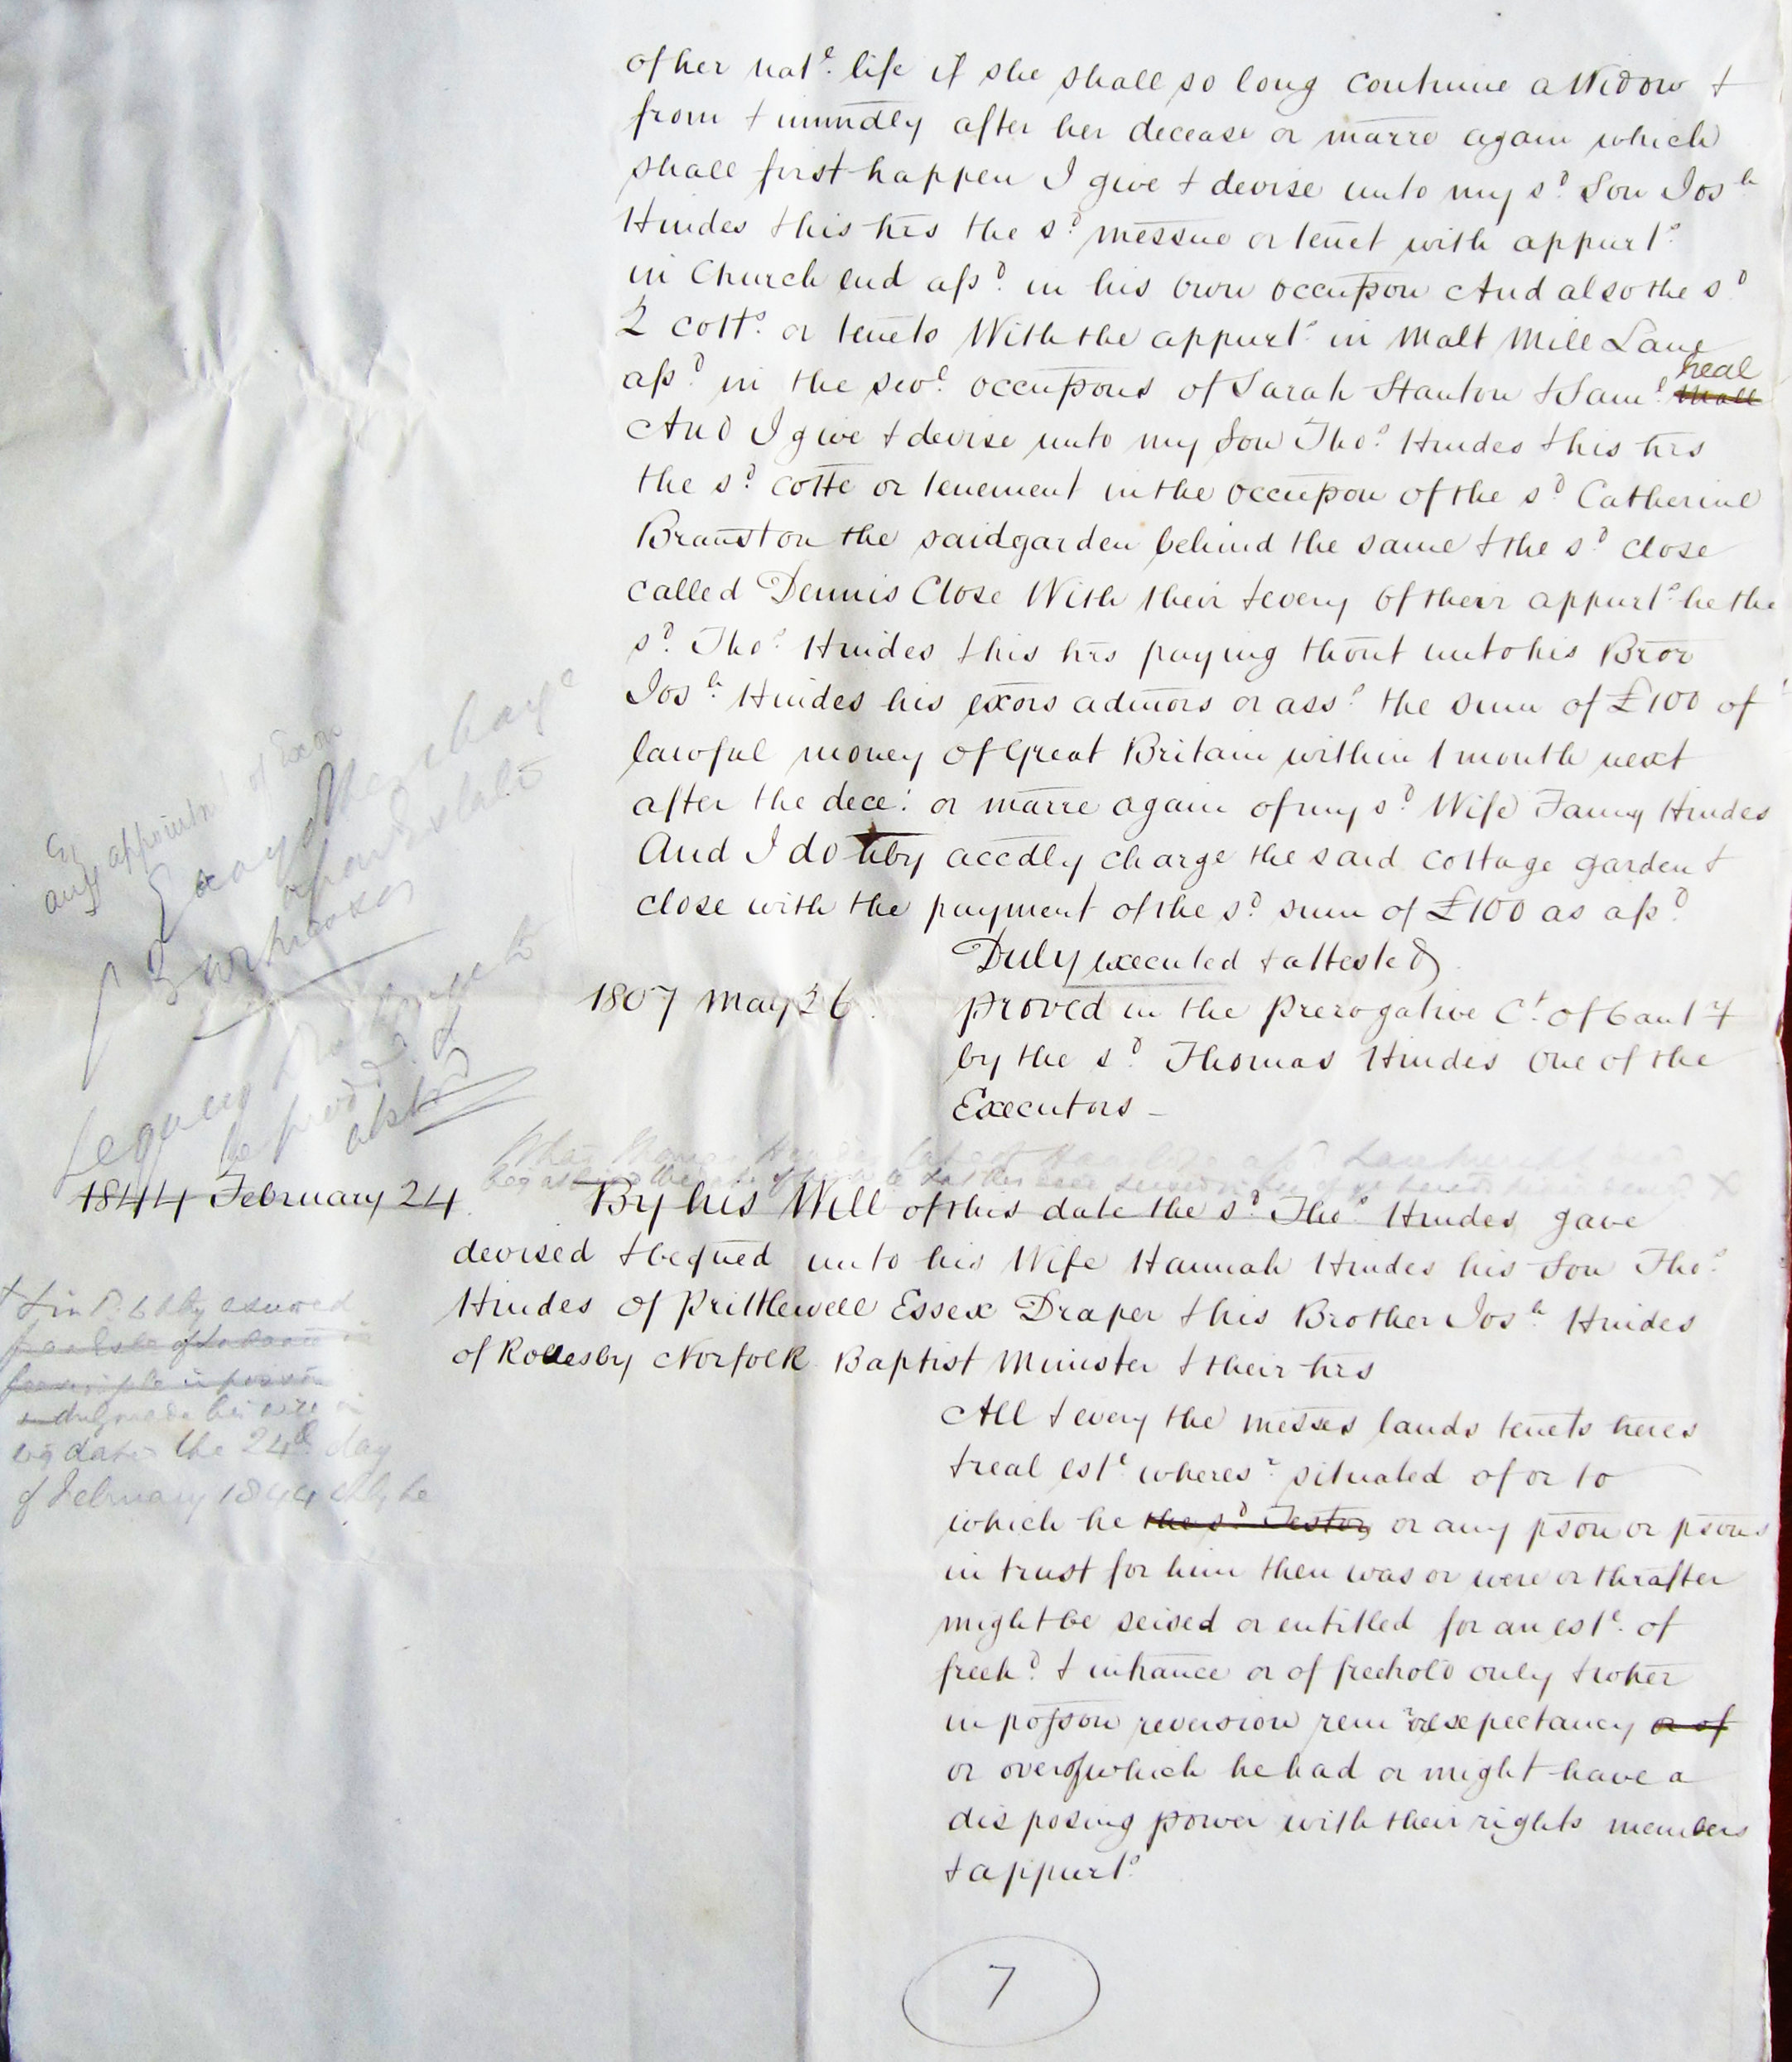 of her nat^l. life if she shall so long continue a Widow &
from & immdly after her decease or marre again which
shall first happen I give & devise unto my s^d. Son Jos^h
Hindes & his hrs the s^d. messue or tenet with appurt^s.
in Church end afs^d. in his own occupon And also the s^d
2 cott^s. or tenets With the appurt^s. in Malt Mill Lane
afs^d. in the sev^l. occupons of Sarah Stanton & Sam^l. Neal
And I give & devise unto my Son Tho^s. Hindes & his hrs
the s^d. cotte or tenement in the occupon of the s^d Catherine
Braunston the said garden behind the same & the s^d close
called Dennis Close With their & every of their appurt^s. he the
s^d. Tho^s. Hindes & his hrs paying thout unto his Bror
Jos^h. Hindes his exors admors or ass^s. the sum of £100 of
lawful money of Great Britain within 1 month next
after the dece^e. or marre again of my s^d Wife Fanny Hindes
And I do hby accdly charge the said cottage garden &
close with the payment of the s^d. sum of £100 as afs^d.
Duly executed & attested
1807 May 26. proved in the Prerogative C^t. of Cant^y
by the s^d Thomas Hindes one of the
Executors –
Legacy
be prod^d. &
abst^d
1844 February 24. By his Will of this date the s^d. Tho^s Hindes gave
devised & bequed unto his Wife Hannah Hindes his Son Tho^s.
Hindes of Prittlewell Essex Draper & his Brother Jos^h. Hindes
of Rollesby Norfolk Baptist Minister & their hrs
his will
dated the 24^th day
of February 1844 he
All & every the messes lands tenets heres
& real est^e. wheres^r. situated of or to
which he the s^d Testor or any pson or psons
in trust for him then was or were or thrafter
might be seised or entitled for an est^e. of
freeh^d. & inhance or of freehold only & wher
in posson reversion rem^r or expectancy or of
or over which he had or might have a
disposing power with their rights members
& appurt^s.
7